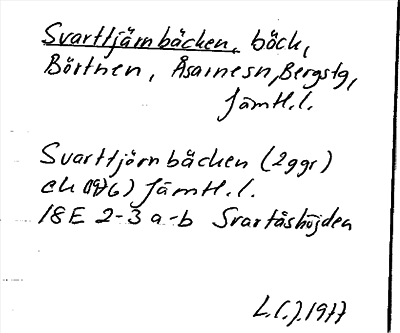 Svarttjärnbäcken, bäck,
Börtnen, Åsarnesn, Bergstg,
Jämtl.l.
Svarttjärnbäcken (2ggr)
ek (1976) Jämtl.l.
18E 2-3 a-b Svartåshöjden
L.(.).1977